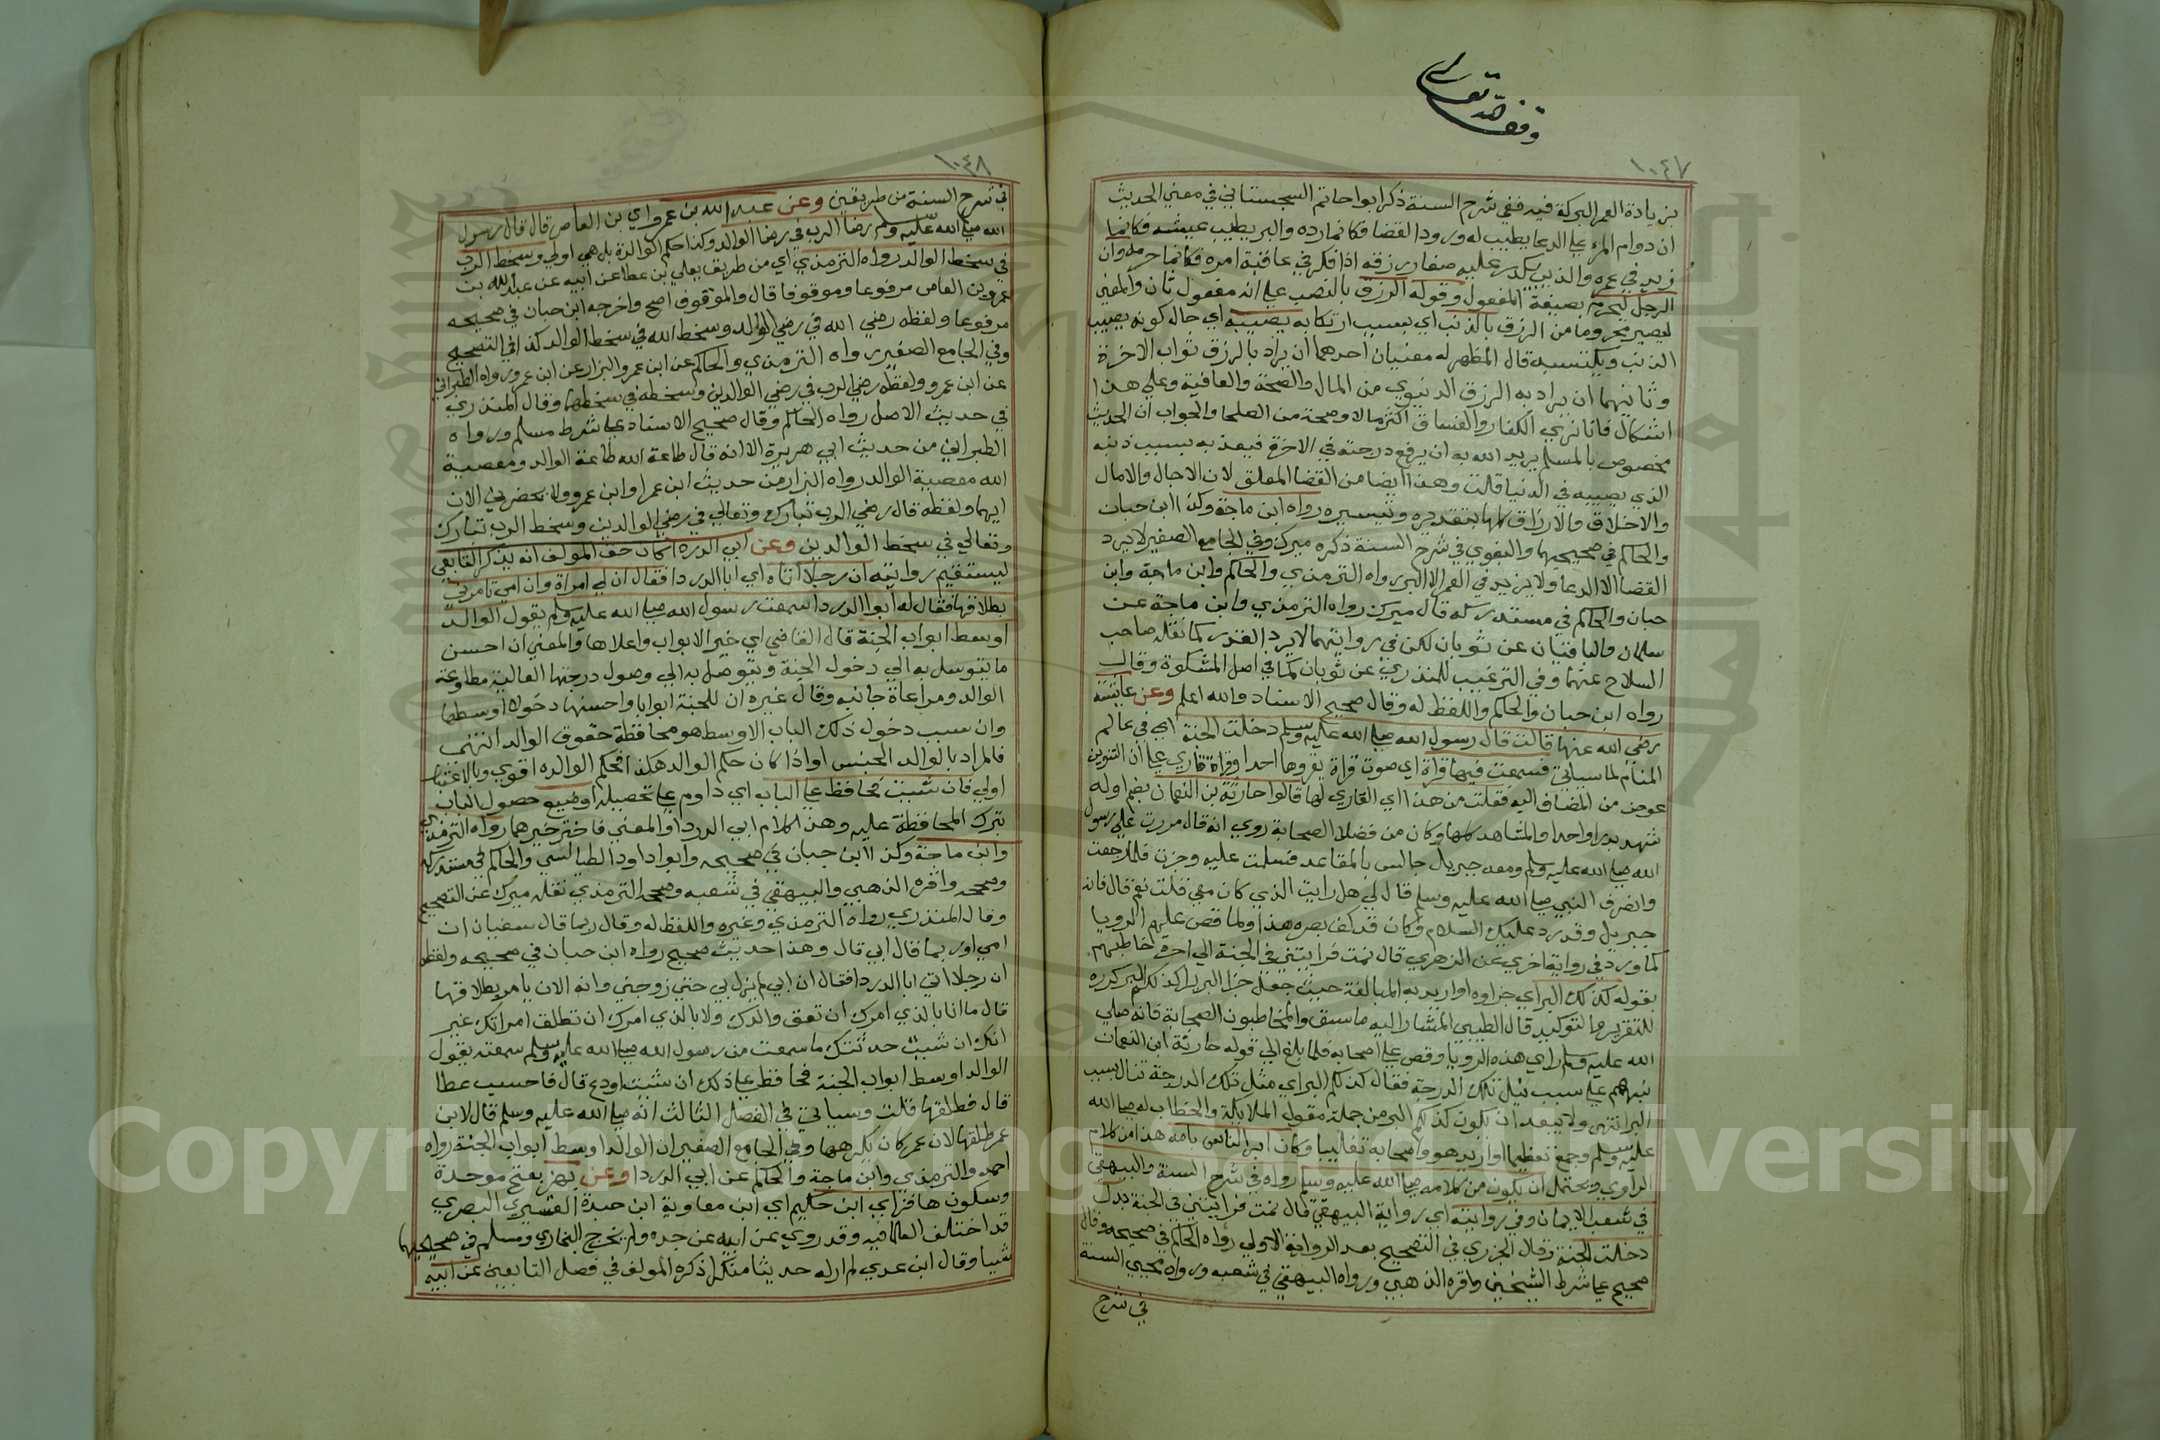 وقف لله تعالى
١٠٤٧
بزيادة العمر البركة فيه ففي شرح السنة ذكر ابو احاتم السجستاني في معني الحديث
ان دوام المرء علي الدعا يطيب له ورود القضا فكانما رده والبر يطيب عيشه فكانما
زيد في عمره والذنب يكدر عليه صفا رزقه اذا فكر في عاقبة امره فكانما حرمه وان
الرجل ليحرم بصيغة المفعول وقوله الرزق بالنصب علي انه مفعول ثان والمعني
ليصير محروما من الرزق بالذنب اي بسبب ارتكابه يصيبه اي حال كونه يصيب
الذنب ويكتسبه قال المظهر له معنيان احدهما ان يراد بالرزق ثواب الاخرة
وثانيهما ان يراد به الرزق الدنيوي من المال والصحة والعافية وعلي هذا
اشكال فانا نري الكفار والفساق اكثر مالا وصحة من الصلحا والجواب ان الحديث
مخصوص بالمسلم يريد الله به ان يرفع درجته في الاخرة فيعذبه بسبب ذنبه
الذي يصيبه في الدنيا قلت وهذا ايضا من القضا المعلق لان الاجال والامال
والاخلاق والارزاق كلها بتقديره وتيسيره رواه ابن ماجة وكذا ابن حبان
والحاكم في صحيحيهما والبغوي في شرح السنة ذكره ميرك وفي الجامع الصغير لا يرد
القضا الا الدعا ولا يزيد في العمر الا البر رواه الترمذي والحاكم وابن ماجة وابن
حبان والحاكم في مستدركه قال ميرك رواه الترمذي وابن ماجة عن
سلمان والباقيان عن ثوبان لكن في روايتهما لا يرد القدر كما نقله صاحب
السلاح عنهما وفي الترغيب للمنذري عن ثوبان كما في اصل المشكوة وقال
رواه ابن حبان والحاكم واللفظ له وقال صحيح الاسناد والله اعلم وعن عايشة
رضي الله عنها قالت قال رسول الله صلي الله عليه وسلم دخلت الجنة اي في عالم
المنام لما سياتي فسمعت فيها قراة اي صوت قراة يقروها احد او قراة قاري علي ان التنوين
عوض من المضاف اليه فقلت من هذا اي القاري لها قالوا حارثة بن النعمان بضم اوله
شهد بدرا واحدا والمشاهد كلها وكان من فضلا الصحابة روي انه قال مررت علي رسول
الله صلي الله عليه وسلم ومعه جبريل جالس بالمقاعد فسلمت عليه وجزت فلما رجعت
وانصرف النبي صلي الله عليه وسلم قال لي هل رايت الذي كان معي قلت نعم قال فانه
جبريل وقد رد عليك السلام وكان قد كف بصره هذا ولما قص عليهم الرويا
كما ورد في رواية اخري عن الزهري قال نمت فرايتني في الجنة الي اخره خاطبهم
بقوله كذلك البر اي جزاوه او اريد به المبالغة حيث جعل جزا البر برا كذلكم البر كرره
للتقرير والتوكيد قال الطيبي المشار اليه ما سبق والمخاطبون الصحابة فانه صلي
الله عليه وسلم راي هذه الرويا وقص علي اصحابه فلما بلغ الي قوله حارثة ابن النعمان
نبههم علي سبب نيل تلك الدرجة فقال كذلكم البر اي مثل تلك الدرجة تنال بسبب
البر انتهي ولا يبعد ان يكون كذلكم البر من جملة مقول الملايكة والخطاب له صلي الله
عليه وسلم وجمع تعظيما او اريد هو واصحابه تغليبا وكان ابر الناس بامه هذا من كلام
الراوي ويحتمل ان يكون من كلامه صلي الله عليه وسلم رواه في شرح السنة والبيهقي
في شعب الايمان وفي روايته اي رواية البيهقي قال نمت فرايتني في الجنة بدل
دخلت الجنة وقال الجزري في التصحيح بعد الرواية الاولي رواه الحاكم في صحيحه وقال
صحيح علي شرط الشيخين واقره الذهبي ورواه البيهقي في شعبه ورواه محيي السنة
في شرح
١٠٤٨
في شرح السنة من طريقين وعن عبد الله بن عمرو اي بن العاص قال قال رسول
الله صلي الله عليه وسلم رضا الرب في رضا الوالد وكذا حكم الوالدة بل هي اولي وسخط الرب
في سخط الوالد رواه الترمذي اي من طريق يعلي بن عطا عن ابيه عن عبد الله بن
عمرو بن العاص مرفوعا وموقوفا قال والموقوف اصح واخرجه ابن حبان في صحيحه
مرفوعا ولفظه رضي الله في رضي الوالد وسخط الله في سخط الوالد كذا في التصحيح
وفي الجامع الصغير رواه الترمذي والحاكم عن ابن عمرو والبزار عن ابن عمر ورواه الطبراني
عن ابن عمرو ولفظه رضي الرب في رضي الوالدين وسخطه في سخطهما وقال المنذري
في حديث الاصل رواه الحاكم وقال صحيح الاسناد علي شرط مسلم ورواه
الطبراني من حديث ابي هريرة الا انه قال طاعة الله طاعة الوالد ومعصية
الله معصية الوالد رواه البزار من حديث ابن عمر او ابن عمرو ولا يحضرني الان
ايهما ولفظه قال رضي الرب تبارك وتعالي في رضي الوالدين وسخط الرب تبارك
وتعالي في سخط الوالدين وعن ابي الدردا كان حق المولف انه يذكر التابعي
ليستقيم روايته ان رجلا اتاه اي ابا الدردا فقال ان لي امراة وان امي تامرني
بطلاقها فقال له ابوا الدردا سمعت رسول الله صلي الله عليه وسلم يقول الوالد
اوسط ابواب الجنة قال القاضي اي خير الابواب واعلاها والمعني ان احسن
ما يتوسل به الي دخول الجنة ويتوصل به الي وصول درجتها العالية مطاوعة
الوالد ومراعاة جانبه وقال غيره ان للجنة ابوابا واحسنها دخولا اوسطها
وان سبب دخول ذلك الباب الاوسط هو محافظة حقوق الوالد انتهي
فالمراد بالوالد الجنس او اذا كان حكم الوالد هكذا فحكم الوالدة اقوي وبالاعتبار
اولي فان شيت فحافظ علي الباب اي داوم علي تحصيله او ضيع حصول الباب
بترك المحافظة عليه وهذا كلام ابي الدردا والمعني فاختر خيرهما رواه الترمذي
وابن ماجة وكذا ابن حبان في صحيحه وابو داود الطيالسي والحاكم في مستدركه
وصححه واقره الذهبي والبيهقي في شعبه وصححه الترمذي نقله ميرك عن التصحيح
وقال المنذري رواه الترمذي وغيره واللفظ له وقال ربما قال سفيان ان
امي وربما قال ابي قال وهذا حديث صحيح رواه ابن حبان في صحيحه ولفظه
ان رجلا اتي ابا الدردا فقال ان ابي لم يزل بي حتي زوجني وانه الان يامر بطلاقها
قال ما انا بالذي امرك ان تعق والدك ولا بالذي امرك ان تطلق امراتك غير
انك ان شيت حدثتك ما سمعت من رسول الله صلي الله عليه وسلم سمعته يقول
الوالد اوسط ابواب الجنة فحافظ علي ذلك ان شيت او دع قال فاحسب عطا
قال فطلقها قلت وسياتي في الفصل الثالث انه صلي الله عليه وسلم قال لابن
عمر طلقها لان عمر كان يكرهها وفي الجامع الصغير ان الوالد اوسط ابواب الجنة رواه
احمد والترمذي وابن ماجة والحاكم عن ابي الدردا وعن بهز بفتح موحدة
وسكون ها فزاي ابن حكيم اي ابن معاوية ابن حيدة القشيري البصري
قد اختلف العلما فيه وقد روي عن ابيه عن جده ولم يخرج البخاري ومسلم في صحيحيهما
شيا وقال ابن عدي لم ار له حديثا منكرا ذكره المولف في فصل التابعين عن ابيه
Copyright © King Saud University